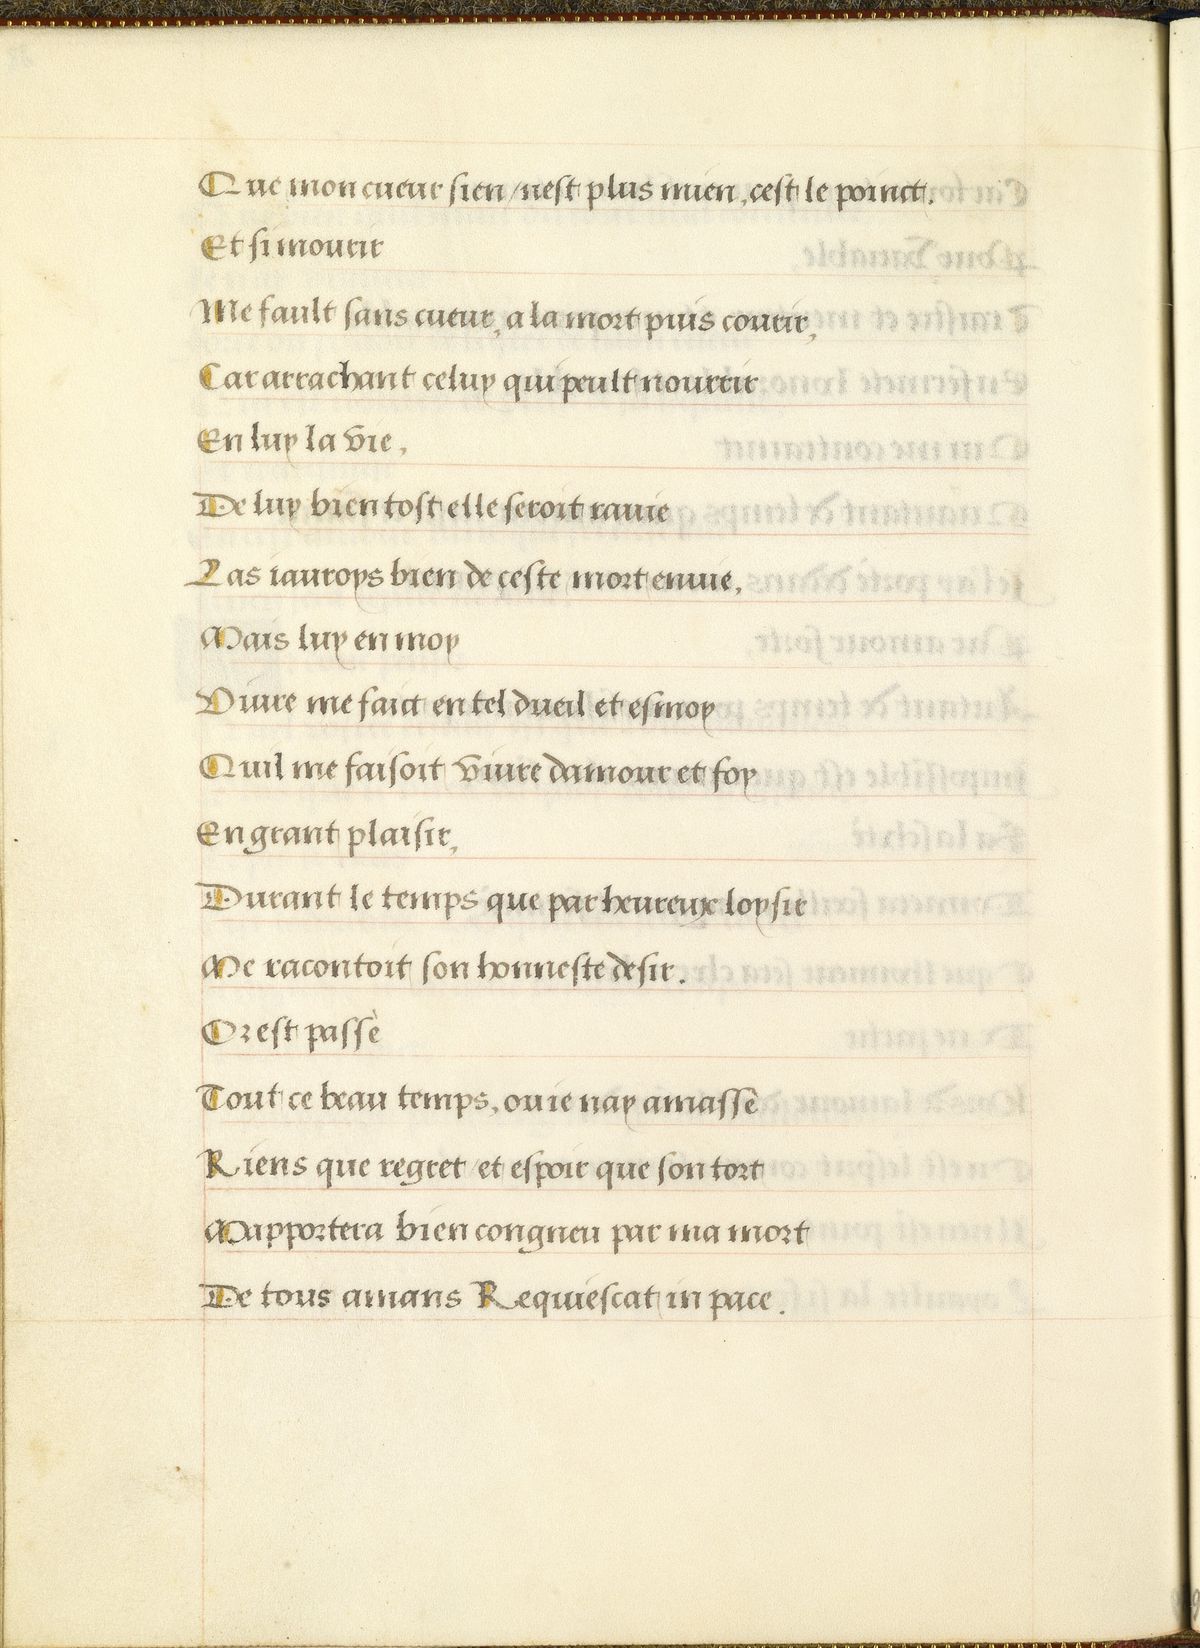 Que mon cueur sien / nest plus mien, cest le poinct.
Et si mourir
Me fault sans cueur, a la mort puis courir,
Car arrachant celuy qui peult nourrir
En luy la vie,
De luy bien tost elle seroit ravie
Las iauroys bien de ceste mort envie,
Mais luy en moy
Vivre me faict en tel dueil et esmoy
Quil me faisoit vivre damour et foy
En grant plaisir,
Durant le temps que par heureux loysir
Me racontoit son honneste desir.
Or est passè
Tout ce beau temps, ou ie nay amassè
Riens que regret / et espoir que son tort
Mapportera bien congneu par ma mort
De tous amans Requiescat in pace.